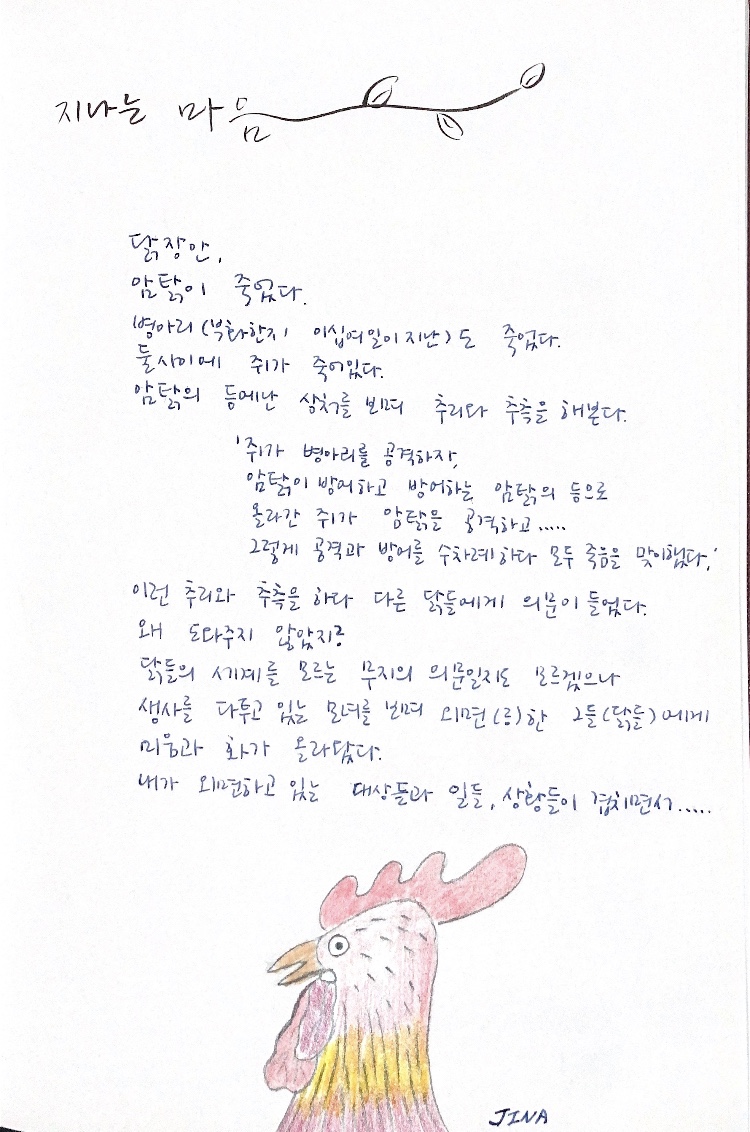 지나는 마음
닭장안,
암탉이 죽었다.
병아리(부화한지 이십여일이지난)도 죽었다.
둘사이에 쥐가 죽어있다.
암탉의 등에난 상처를 보며 추리와 추측을 해본다.
'쥐가 병아리를 공격하자,
암탉이 방어하고 방어하는 암탉의 등으로
올라간 쥐가 암탉을 공격하고.....
그렇게 공격과 방어를 수차례하다 모두 죽음을 맞이했다.'
이런 추리와 추측을 하다 다른 닭들에게 의문이 들었다.
왜 도와주지 않았지?
닭들의 세계를 모르는 무지의 의문일지도 모르겠으나
생사를 다투고 있는 모녀를 보며 외면(을)한 그들(닭들)에게
미움과 화가 올라왔다.
내가 외면하고 있는 대상들과 일들, 상황들이 겹치면서.....
JINA